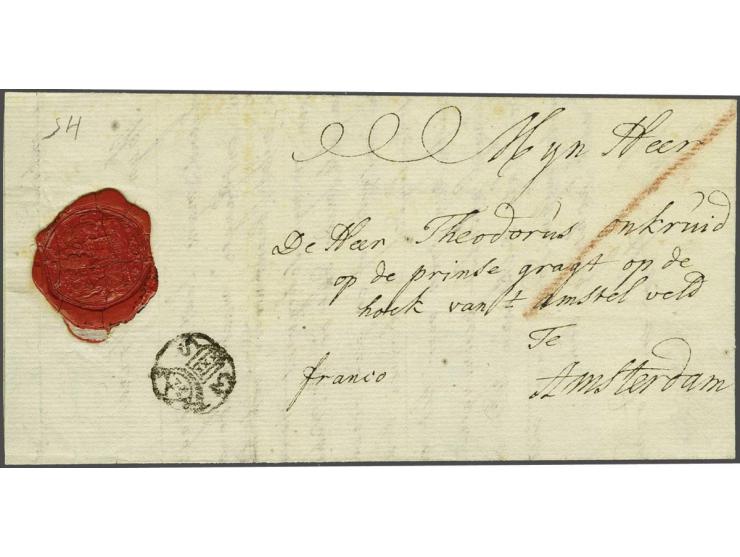 SH
Myn Heer
De Heer Theodorus onkruid
op de prinse gragt op de
hoek van t amstel veld
Te
franco
Amsterdam